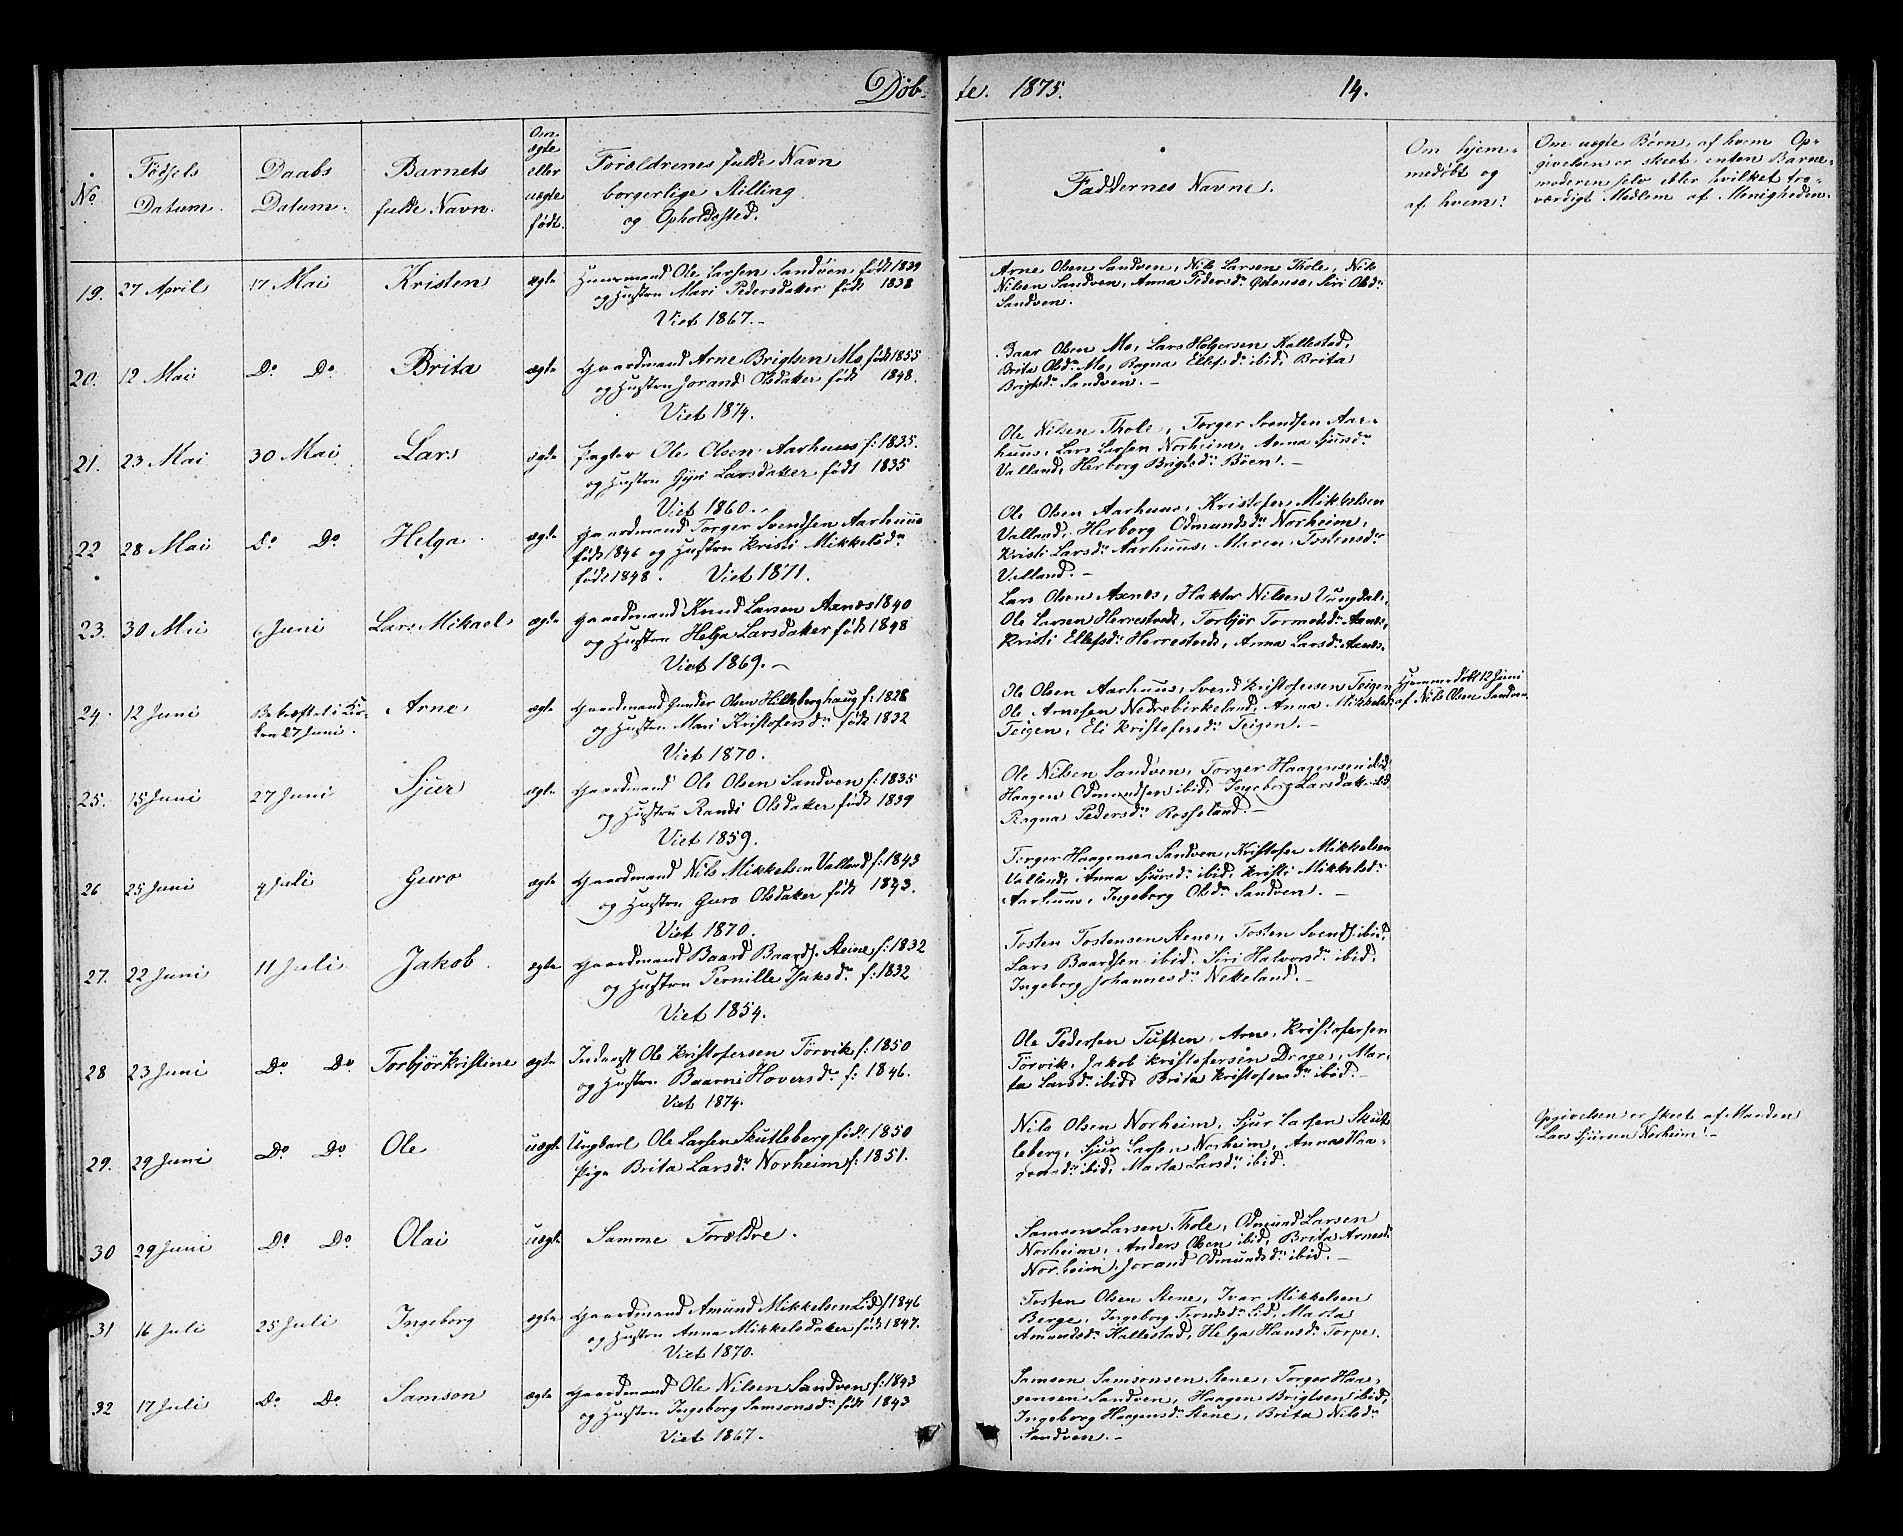 Døbte. 1875. 14.
No
Fødsels Datum.
Daabs Datum.
Barnets fulde Navn.
Om ægte eller uægte født.
Forældrenes fulde Navn borgerlige Stilling og Opholdssted.
Faddernes Navne.
Om hjemmedøbt og af hvem?
Om uægte Børn, af hvem Opgivelsen er skeet, enten Barnemoderen selv eller hvilket troværdigt Medlem af Menigheden.
19. 27 April 17 Mai Kristen ægte Huusmand Ole Larsen Sandven født 1839
og Hustru Mari Pedersdatter født 1838
Viet 1867.-
Arne Olsen Sandven, Nils Larsen Thole, Nils
Nilsen Sandven, Anna Pedersdr. Østensø, Siri Olsdr.
Sandven.
20. 12 Mai Do Do Brita ægte Gaardmand Arne Brigtsen Mo født 1855
og Hustru Jorand Olsdatter født 1848.
Viet 1874.
Baar Olsen Mo, Lars Holgersen Kallestad,
Brita Olsdr. Mo, Ragna Ellefsdr. ibid, Brita
Brigtsdr. Sandven.-
21. 23 Mai 30 Mai Lars ægte Pagter Ole Olsen Aarhuus f: 1835.
og Hustru Gyri Larsdatter født 1835
Viet 1860.-
Ole Nilsen Thole, Torger Svendsen Aar-
huus, Lars Larsen Norheim, Anna Sjursdr.
Valland, Herborg Brigtsdr. Bøen.-
22 28 Mai Do Do Helga ægte Gaardmand Torger Svendsen Aarhuus
født 1846 og Hustru Kristi Mikkelsdr.
født 1848. Viet 1871.
Ole Olsen Aarhuus, Kristofer Mikkelsen
Valland, Herborg Odmundsdr. Norheim,
Kristi Larsdr. Aarhuus, Maren Tostensdr.
Valland.-
23. 30 Mai 6 Juni Lars Mikael ægte Gaardmand Knud Larsen Axnes 1840
og Hustru Helga Larsdatter født 1848
Viet 1869.-
Lars Olsen Axnes, Haktor Nilsen Vungdal,
Ole Larsen Herrestveit, Torbjør Tormodsdr. Axnes,
Kristi Ellefsdr. Herrestvedt, Anna Larsdr. Axnes.
24. 12 Juni Bekræftet i Kir-
ken 27 Juni. Arne ægte Gaardmand Gunder Olsen Hillesberghaug f: 1828
og Hustru Mari Kristofersdr. født 1832
Viet 1870.
Ole Olsen Aarhuus, Svend Kristofersen Teigen
Ole Arnesen Nedrebirkeland, Anna Mikkelsdr.
Teigen, Eli Kristofersdr. Teigen.-
Hjemmedøbt 12 Juni
af Nils Olsen Sandven
25. 15 Juni 27 Juni Sjur ægte Gaardmand Ole Olsen Sandven f: 1835
og Hustru Randi Olsdatter født 1839
Viet 1859.
Ole Nilsen Sandven, Torger Haagensen ibid
Haagen Odmundsen ibid, Ingeborg Larsdatter ibid
Ragna Pedersdr. Rosseland.-
26 25 Juni 4 Juli Guro ægte Gaardmand Nils Mikkelsen Valland f: 1843
og Hustru Guro Olsdatter født 1843.
Viet 1870.
Torger Haagensen Sandven, Kristofer Mikkelsen
Valland, Anna Sjursdr. ibid, Kristi Mikkelsdr.
Aarhuus, Ingeborg Olsdr. Sandven.-
27. 22 Juni 11 Juli Jakob ægte Gaardmand Baard Baards. Steine f: 1832
og Hustru Pernille Isaksdr. f: 1832
Viet 1854.
Tosten Tostensen Stene, Tosten Svends. ibid,
Lars Baardsen ibid, Siri Halvorsdr. ibid,
Ingeborg Johannesdr. Nekkeland.-
28 23 Juni Do Do Torbjør Kristine ægte Inderst Ole Kristofersen Tørvik f: 1850
og Hustru Baarni Hoversdr. f: 1846.
Viet 1874.
Ole Pedersen Tuften, Arne Kristofersen
Tørvik, Jakob Kristofersen Drage, Mar-
ta Larsdr. ibid, Brita Kristofersdr. ibid.-
29. 29 Juni Do Do Ole uægte Ungkarl Ole Larsen Skutleberg født 1850
Pige Brita Larsdr. Norheim f: 1851.
Nils Olsen Norheim, Sjur Larsen Skut-
leberg, Sjur Larsen Norheim, Anna Haa-
gensdr. ibid, Marta Larsdr. ibid.
Opgivelsen er skeet af Manden
Lars Sjursen Norheim.-
30 29 Juni Do Do Olai uægte Samme Forældre.
Samson Larsen Thole, Odmund Larsen
Norheim, Anders Olsen ibid, Brita Arnesdr.
Norheim, Jorand Odmundsdr. ibid.-
31 16 Juli 25 Juli Ingeborg ægte Gaardmand Amund Mikkelsen Lid f 1846
og Hustru Anna Mikkelsdatter født 1847.
Viet 1870.
Tosten Olsen Stene, Ivar Mikkelsen
Berge, Ingeborg Lid, Marta
Amundsdr. Kallestad, Helga Hansdr. Torpe.
32 17 Juli Do Do Samson ægte Gaardmand Ole Nilsen Sandven f: 1843
og Hustru Ingeborg Samsonsdr. født 1843
Viet 1867.
Samson Samsonsen Stene, Torger Haa-
gensen Sandven, Haagen Brigtsen ibid,
Ingeborg Haagensdr. Stene, Brita Nilsdr.
Sandven.-